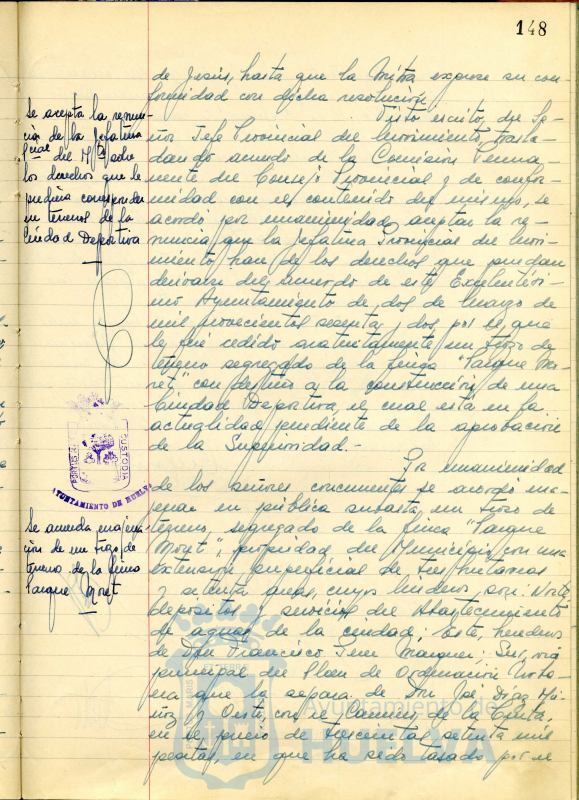 148
de Jesús, hasta que la Mitra exprese su con-
formidad con dicha resolución.
Se acepta la renun-
cia de la Jefatura
Pcial del Mto sobre
los derechos que le
pudiera corresponder
en terrenos de la
Ciudad Deportiva
Visto escrito del Se-
ñor Jefe Provincial del Movimiento, trasla-
dando acuerdo de la Comisión Perma-
nente del Consejo Provincial y de confor-
midad con el contenido del mismo, se
acordó por unanimidad aceptar la re-
nuncia que la Jefatura Provincial del Movi-
miento hace de los derechos que puedan
derivarse del acuerdo de este Excelentísi-
mo Ayuntamiento de dos de Marzo de
mil novecientos sesenta y dos, por el que
le fue cedido gratuitamente un trozo de
terreno segregado de la finca "Parque Mo-
ret" con destino a la construcción de una
Ciudad Deportiva, el cual está en la
actualidad pendiente de la aprobación
de la Superioridad.-
PORTUS MARIS
CUSTODIA
AYUNTAMIENTO DE HUELVA
Se acuerda enajena-
ción de un trozo de
terreno de la finca
Parque Moret
Por unanimidad
de los señores concurrentes se acordó ena-
jenar en pública subasta un trozo de
terreno, segregado de la finca "Parque
Moret", propiedad del Municipio, con una
extensión superficial de tres hectáreas
y setenta áreas, cuyos linderos, son: Norte,
depósitos y servicios del Abastecimiento
de aguas de la ciudad; Este, herederos
de Don Francisco Jem Marquez; Sur, vía
principal del Plan de Ordenación Urba-
na que la separa de Don José Díaz Mu-
ñoz y Oeste, con el Camino de la Cinta,
en el precio de trescientas setenta mil
pesetas, en que ha sido tasado por el
Ayuntamiento de
HUELVA